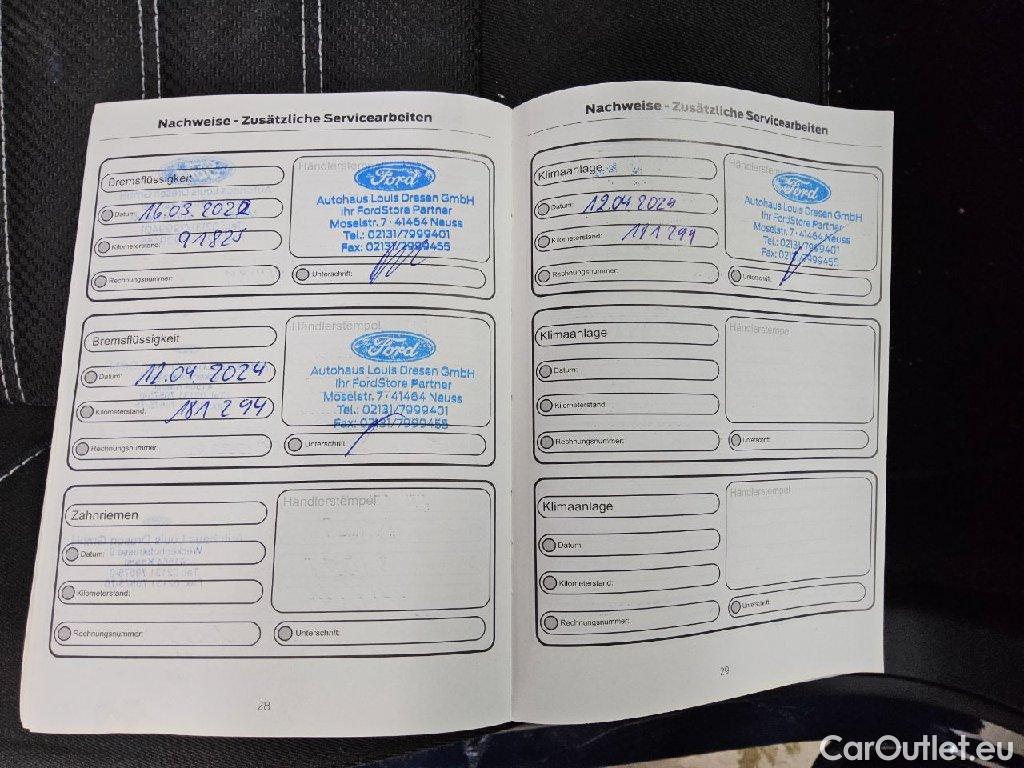 Nachweise - Zusätzliche Servicearbeiten
Bremsflüssigkeit
Datum: 16.03.2022
Kilometerstand: 91825
Rechnungsnummer:
Händlerstempel
Ford
Autohaus Louis Dresen GmbH
Ihr FordStore Partner
Moselstr. 7 · 41464 Neuss
Tel.: 02131/7999401
Fax: 02131/7999455
Unterschrift:
Bremsflüssigkeit
Datum: 12.04 2024
Kilometerstand: 181 294
Rechnungsnummer:
Händlerstempel
Ford
Autohaus Louis Dresen GmbH
Ihr FordStore Partner
Moselstr. 7 · 41464 Neuss
Tel.: 02131/7999401
Fax: 02131/7999455
Unterschrift:
Zahnriemen
Datum:
Kilometerstand:
Rechnungsnummer:
Händlerstempel
Unterschrift:
28
Nachweise - Zusätzliche Servicearbeiten
Klimaanlage
Datum: 12.04 2024
Kilometerstand: 181 299
Rechnungsnummer:
Händlerstempel
Ford
Autohaus Louis Dresen GmbH
Ihr FordStore Partner
Moselstr. 7 · 41464 Neuss
Tel.: 02131/7999401
Fax: 02131/7999455
Unterschrift:
Klimaanlage
Datum:
Kilometerstand:
Rechnungsnummer:
Händlerstempel
Unterschrift:
Klimaanlage
Datum:
Kilometerstand:
Rechnungsnummer:
Händlerstempel
Unterschrift:
29
CarOutlet.eu